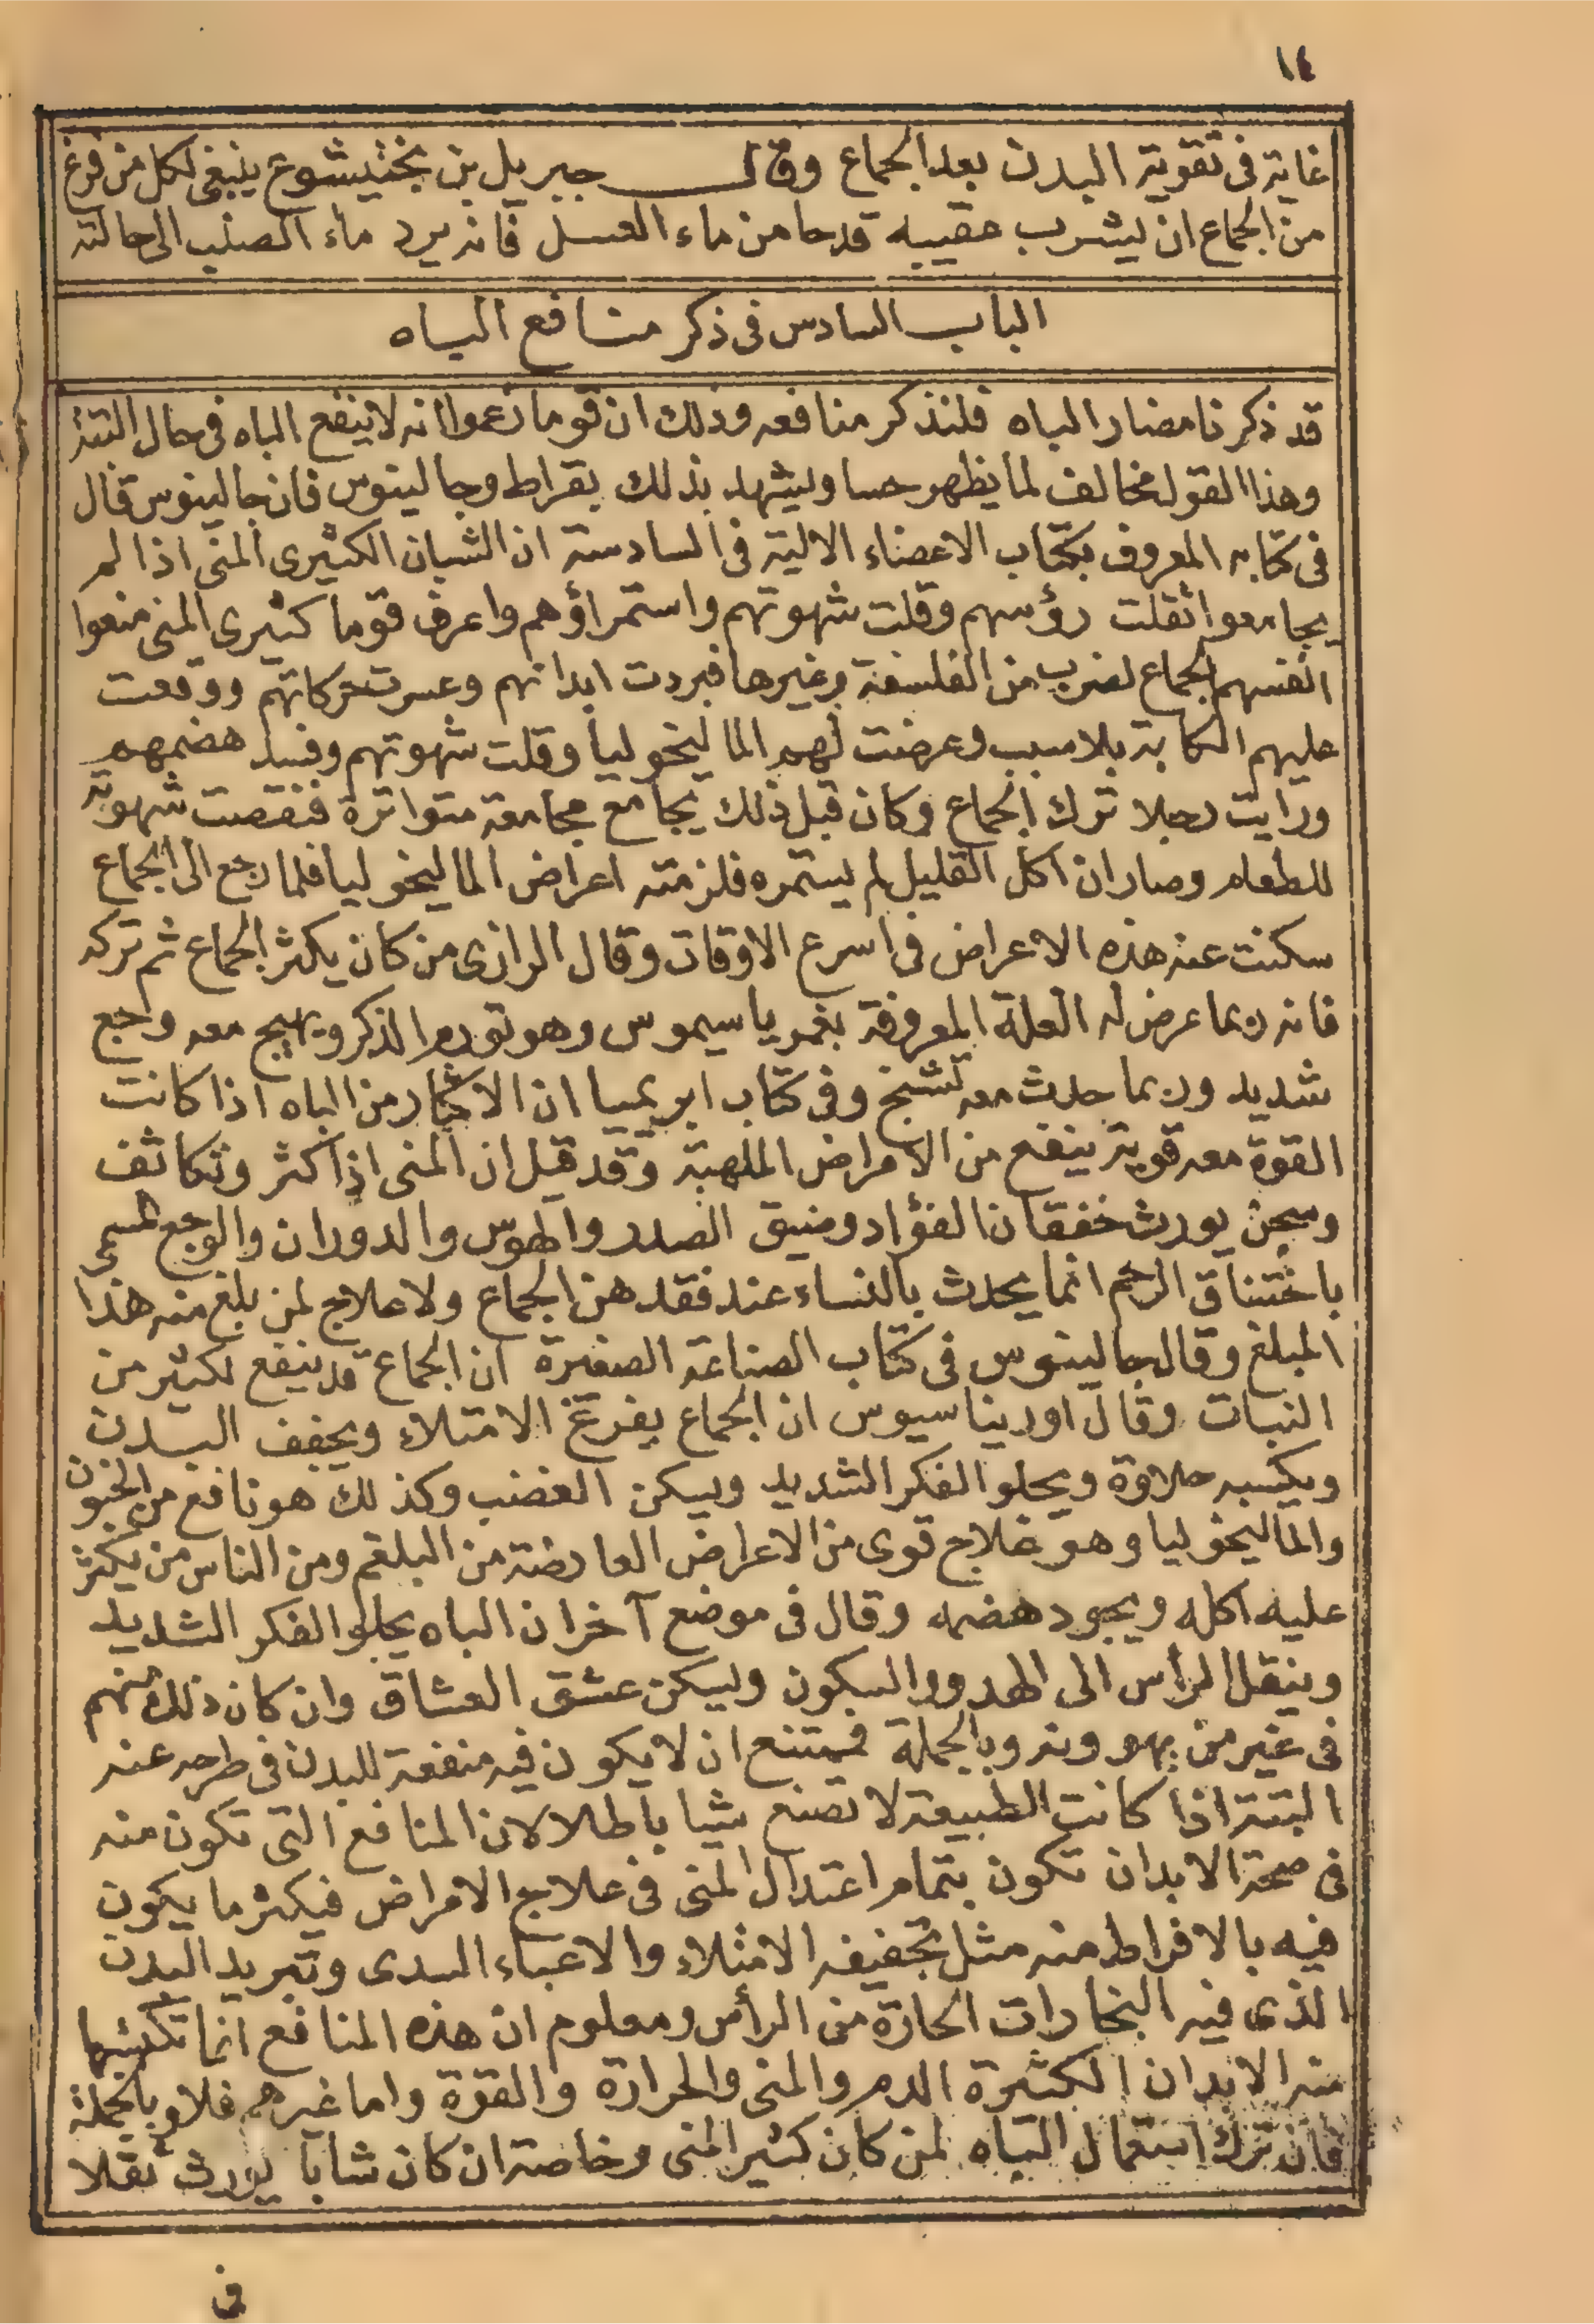 ١٤
غاية فى تقوية البدن بعد الجماع وقال جبريل بن بختيشوع ينبغى لكل من فرغ
من الجماع ان يشرب عقيبه قدحا من ماء العسل فانه يرد ماء الصلب الى حالته
الباب السادس فى ذكر منافع الباه
قد ذكرنا مضار الباه فلنذكر منافعه وذلك ان قوما زعموا انه لا ينفع الباه فى حال البتة
وهذا القول مخالف لما يظهر حسا ويشهد بذلك بقراط وجالينوس فان جالينوس قال
فى كتابه المعروف بكتاب الاعضاء الالية فى السادسة ان الشبان الكثيرى المنى اذا لم
يجامعوا ثقلت رؤسهم وقلت شهوتهم واستمراؤهم واعرف قوما كثيرى المنى منعوا
انفسهم الجماع لضرب من الفلسفة وغيرها فبردت ابدانهم وعسرت حركاتهم ووقعت
عليهم الكابة بلا سبب وعرضت لهم الماليخوليا وقلت شهوتهم وفسد هضمهم
ورايت رجلا ترك الجماع وكان قبل ذلك يجامع مجامعة متواترة فنقصت شهوته
للطعام وصار ان اكل القليل لم يستمره فلزمته اعراض الماليخوليا فلما رجع الى الجماع
سكنت عنه هذه الاعراض فى اسرع الاوقات وقال الرازى من كان يكثر الجماع ثم تركه
فانه ربما عرض له العلة المعروفة بغمرياسيموس وهو تورم الذكر ويهيج معه وجع
شديد وربما حدث معه تشنج وفى كتاب ابريميا ان الاكثار من الباه اذا كانت
القوة معه قوية ينفع من الامراض الملهبة وقد قيل ان المنى اذا كثر وتكاثف
وسجن يورث خفقان الفؤاد وضيق الصدر والهوس والدوران والوجع المسمى
باختناق الرحم انما يحدث بالنساء عند فقدهن الجماع ولا علاج لمن بلغ منه هذا
المبلغ وقال جالينوس فى كتاب الصناعة الصغيرة ان الجماع قد ينفع لكثير من
النبات وقال اوريناسيوس ان الجماع يفرغ الامتلاء ويخفف البدن
ويكسبه حلاوة ويحلو الفكر الشديد ويسكن الغضب وكذلك هو نافع من الجنون
والماليخوليا وهو علاج قوى من الاعراض العارضة من البلغم ومن الناس من يكثر
عليه اكله ويجود هضمه وقال فى موضع آخر ان الباه يحلو الفكر الشديد
وينقل الراس الى الهدو والسكون ويسكن عشق العشاق وان كان ذلك منهم
فى غير من يهوونه وبالجملة فيمتنع ان لا يكون فيه منفعة للبدن فى طرحه عنه
البتة اذا كانت الطبيعة لا تصنع شيا باطلا لان المنافع التى تكون منه
فى صحة الابدان تكون بتمام اعتدال المنى فى علاج الامراض فيكثر ما يكون
فيه بالافراط منه مثل تجفيفه الامتلاء والاعياء البدى وتبريد البدن
الذى فيه البخارات الحارة من الرأس ومعلوم ان هذه المنافع انما تكتسبها
منه الابدان الكثيرة الدم والمنى والحرارة والقوة واما غيرهم فلا وبالجملة
فان ترك استعمال الباه لمن كان كثير المنى وخاصة ان كان شابا يورث ثقلا
فى